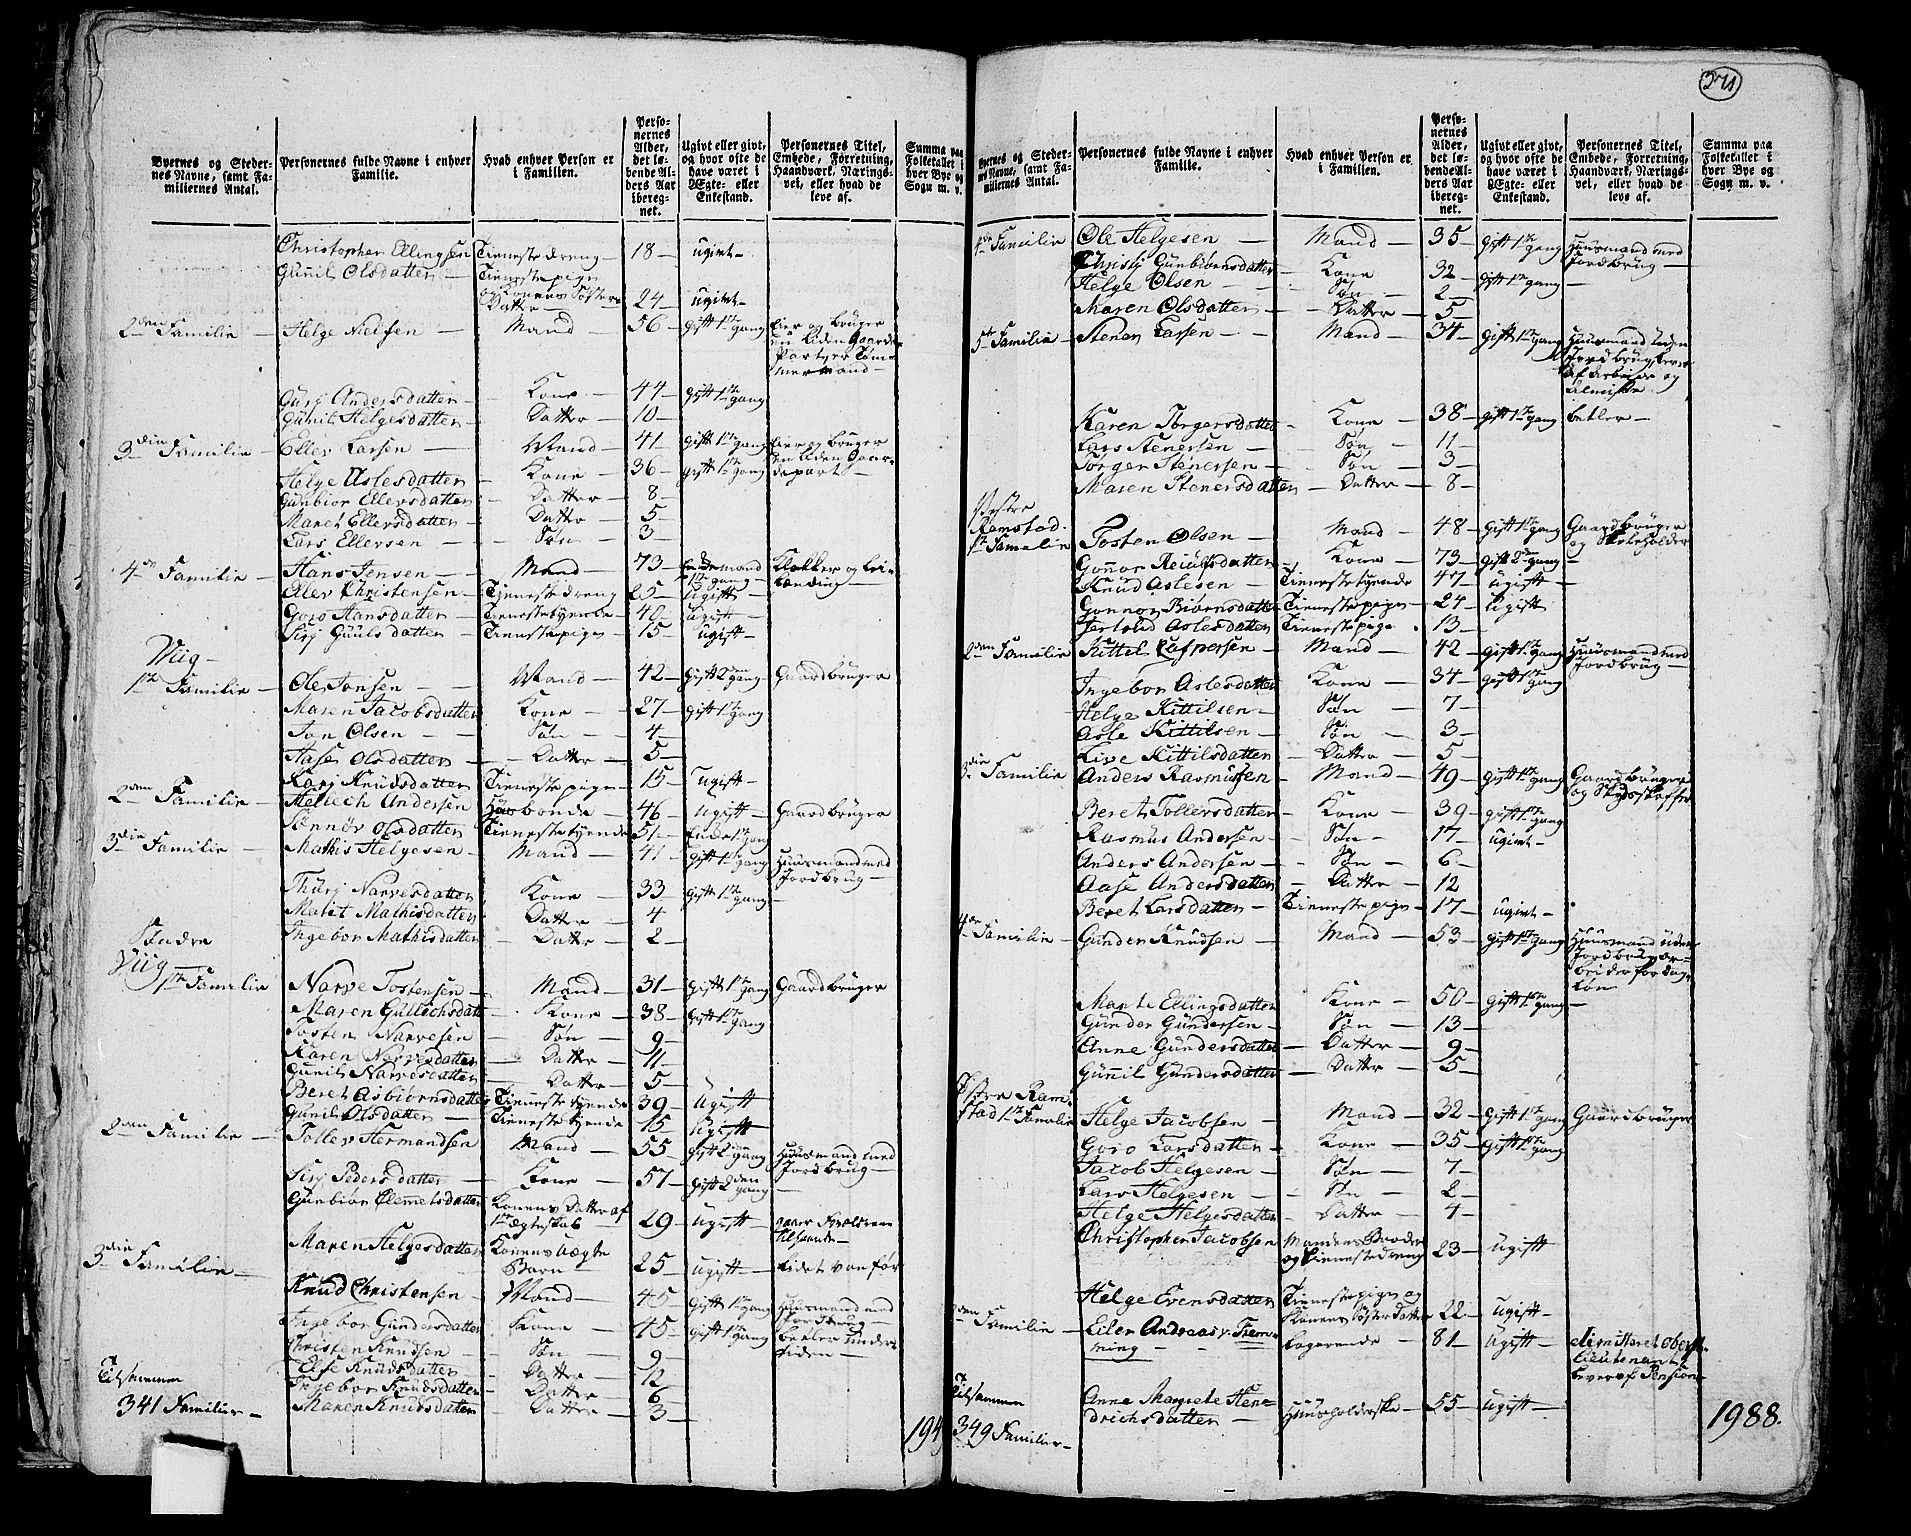 271
Byernes og Steder-
nes Navne, samt Fa-
miliernes Antal.
Personernes fulde Navne i enhver
Familie.
Hvad enhver Person er
i Familien.
Perso-
nernes
Alder,
det lø-
bende Al-
ders Aar
iberegn-
net.
Ugivt eller givt,
og hvor ofte de
have været i
Ægte- eller
Enkestand.
Personernes Titel,
Embede, Forretning,
Haandværk, Nærings-
vei, eller hvad de
leve af.
Summa paa
Folketallet i
hver Bye og
Sogn m. v.
Christopher Ellingsen Tienestedreng 18 ugivt
Gunil Olsdatter Tienestepige
og Konens Søsters
Datter 24 ugivt
2den Familie Helge Nielsen Mand 56 gift 1te gang Eier og bruger
en liden Gaarde
Part, er Tøm-
mermand
Guri Andersdatter Kone 44 gift 1te gang
Gunil Helgesdatter Datter 10
3die Familie Eller Larsen Mand 41 gift 1te gang Eier og bruger
en liden Gaar-
depart
Helge Aslesdatter Kone 36 gift 1te gang
Gunbior Ellersdatter Datter 8
Maret Ellersdatter Datter 5
Lars Ellersen Søn 3
4de Familie Hans Jensen Mand 73 Enkemand 1te gang Klokker og
Eller Christensen Tienestedreng 25 Ugift
Goro Hansdatter Tienestetyende 40 Ugift
Siri Guulsdatter Tienestepige 15 ugift
Viig
1te Familie Ole Jonsen Mand 42 Gift 2den gang Gaardbruger
Maren Jacobsdatter Kone 27 gift 1te gang
Jon Olsen Søn 4
Aase Olsdatter Datter 5
Kari Knudsdatter Tienestepige 15 ugift
2den Familie Hellech Andersen Huusbonde 46 ugift Gaardbruger
Sønnøv Olsdatter Tienestetyende 51 Enke 1te gang
3die Familie Mathis Helgesen Mand 41 gift 1te gang Huusmand med
Jordbrug
Thuri Narvesdatter Kone 33 gift 1te gang
Malit Mathisdatter Datter 4
Ingebor Mathisdatter Datter 2
Søndre
Viig
1te Familie Narve Tostensen Mand 31 gift 1te gang Gaardbruger
Maren Gullechsdatt Kone 38 gift 1te gang
Tosten Narvesen Søn 9
Karen Narvesdatter Datter 11
Gunil Narvesdatter Datter 5
Beret Asbiørnsdatter Tienestetyende 39 Ugift
Gunil Olsdatter Tienestetyende 15 Ugift
2den Familie Tollev Hermandsen Mand 55 Gift 2 gang Huusmand med
Jordbrug
Siri Pedersdatter Kone 57 gift 2den gang
Gunbiør Clemetsdatter Konens Datter af
1te Ægteskab 29 Ugift gaaer Forældrene
tilhaande
Maren Helgesdatter Konens Uægte
Barn 25 ugift lidet vanfør
3die Familie
Knud Christensen Mand 45 Gift 1te gang Huusmand med
Jordbrug
Ingebor Gundersdatter Kone 45 gift 1te gang betler under
tiden
Christen Knudsen Søn 9
Else Knudsdatter Datter 12
Ingebor Knudsdatter Datter 6
Maren Knudsdatter Datter 3
Tilsammen
341 Familier
194
Byernes og Steder-
nes Navne, samt Fa-
miliernes Antal.
Personernes fulde Navne i enhver
Familie.
Hvad enhver Person er
i Familien.
Perso-
nernes
Alder,
det lø-
bende Al-
ders Aar
iberegn-
net.
Ugivt eller givt,
og hvor ofte de
have været i
Ægte- eller
Enkestand.
Personernes Titel,
Embede, Forretning,
Haandværk, Nærings-
vei, eller hvad de
leve af.
Summa paa
Folketallet i
hver Bye og
Sogn m. v.
4de Familie Ole Helgesen Mand 35 gift 1te gang Huusmand med
Jordbrug
Christi Gunbiørnsdatter Kone 32 gift 1te gang
Helge Olsen Søn 2
Maren Olsdatter Datter 5
5te Familie Stener Larsen Mand 34 gift 1te gang Huusmand uden
Jordbrug, lever
af Arbeide og
Almisse
Karen Torgersdatter Kone 38 gift 1te gang betler
Lars Stenersen Søn 11
Torger Stenersen Søn 3
Maren Stenersdatter Datter 8
Vestre
Ramstad
1te Familie Tosten Olsen Mand 48 gift 1te gang Gaardbruger
og Skoleholder
Gonnor Reiulfsdatter Kone 73 gift 2den gang
Knud Aslesen Tienestetyende 47 ugift
Gonnor Biørnsdatter Tienestepige 24 Ugift
Aslesdatter Tienestepige 13
2den Familie Kittil Caspersen Mand 42 gift 1te gang Huusmand med
Jordbrug
Ingebor Aslesdatter Kone 34 gift 1te gang
Helge Kittilsen Søn 7
Asle Kittilsen Søn 3
Live Kittilsdatter Datter 5
3die Familie Anders Rasmussen Mand 49 gift 1te gang Gaardbruger
og Skydsskaffer
Beret Tollersdatter Kone 39 gift 1te gang
Rasmus Andersen Søn 17 ugivt
Anders Andersen Søn 6
Aase Andersdatter Datter 12
Beret Larsdatter Tienestepige 17 ugivt
4de Familie Gunder Knudsen Mand 53 gift 1te gang Huusmand uden
Jordbrug ar-
beider for Dag-
løn
Marte Ellingsdatter Kone 50 gift 1te gang
Gunder Gundersen Søn 13
Anne Gundersdatter Datter 9
Gunnil Gundersdatter Datter 5
Østre Ram-
stad 1te Familie
Helge Jacobsen Mand 32 Gift 1te gang Gaardbruger
Goro Larsdatter Kone 35 gift 1te gang
Jacob Helgesen Søn 7
Lars Helgesen Søn 2
Helge Helgesdatter Datter 4
Christopher Jacobsen Mandens Broder
og Tienestedreng 23 ugift
Helge Evensdatter Tienestepige og
Konens Søster Datter 22 ugift
2den Familie Eiler Andreas v. Flem-
ming Logerende 81 Ugift Dimitteret Oberst-
lieutenant
lever af Pension
Anne Margrete Hen-
drichsdatter Huusholderske 55 Ugift
Tilsammen
349 Familier
1988.